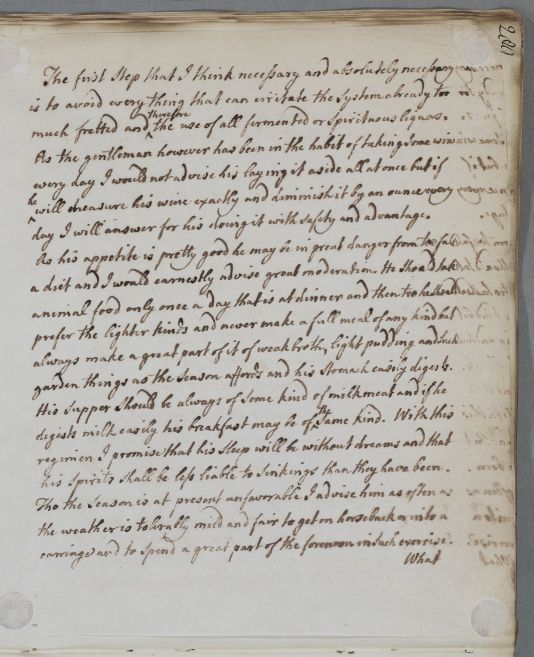 The first step that I think necessary and absolutely necessary
is to avoid every thing that can irritate the system already too
much fretted and therefore the use of all fermented or spirituous liquors.
As the gentleman however has been in the habit of taking some wine
every day I would not advise his laying it aside all at once but if
he will measure his wine exactly and diminish it by an ounce every
day I will answer for his doing it with safety and advantage.
As his appetite is pretty good he may be in great danger from too full
a diet and I would earnestly advise great moderation. He should take
animal food only once a day that is at dinner and then too he should
prefer the lighter kinds and never make a full meal of any kind but
always make a great part of it of weak broth, light pudding and such
garden things as the season affords and his stomach easily digests.
His supper should be always of some kind of milk meat and if he
digests milk easily his breakfast may be of the same kind. With this
regimen I promise that his sleep will be without dreams and that
his spirits shall be less liable to sinkings than they have been.
Tho the season is at present unfavorable I advise him as often as
the weather is tolerably mild and fair to get on horseback or into a
carriage and to spend a great part of the forenoon in such exercise.
What